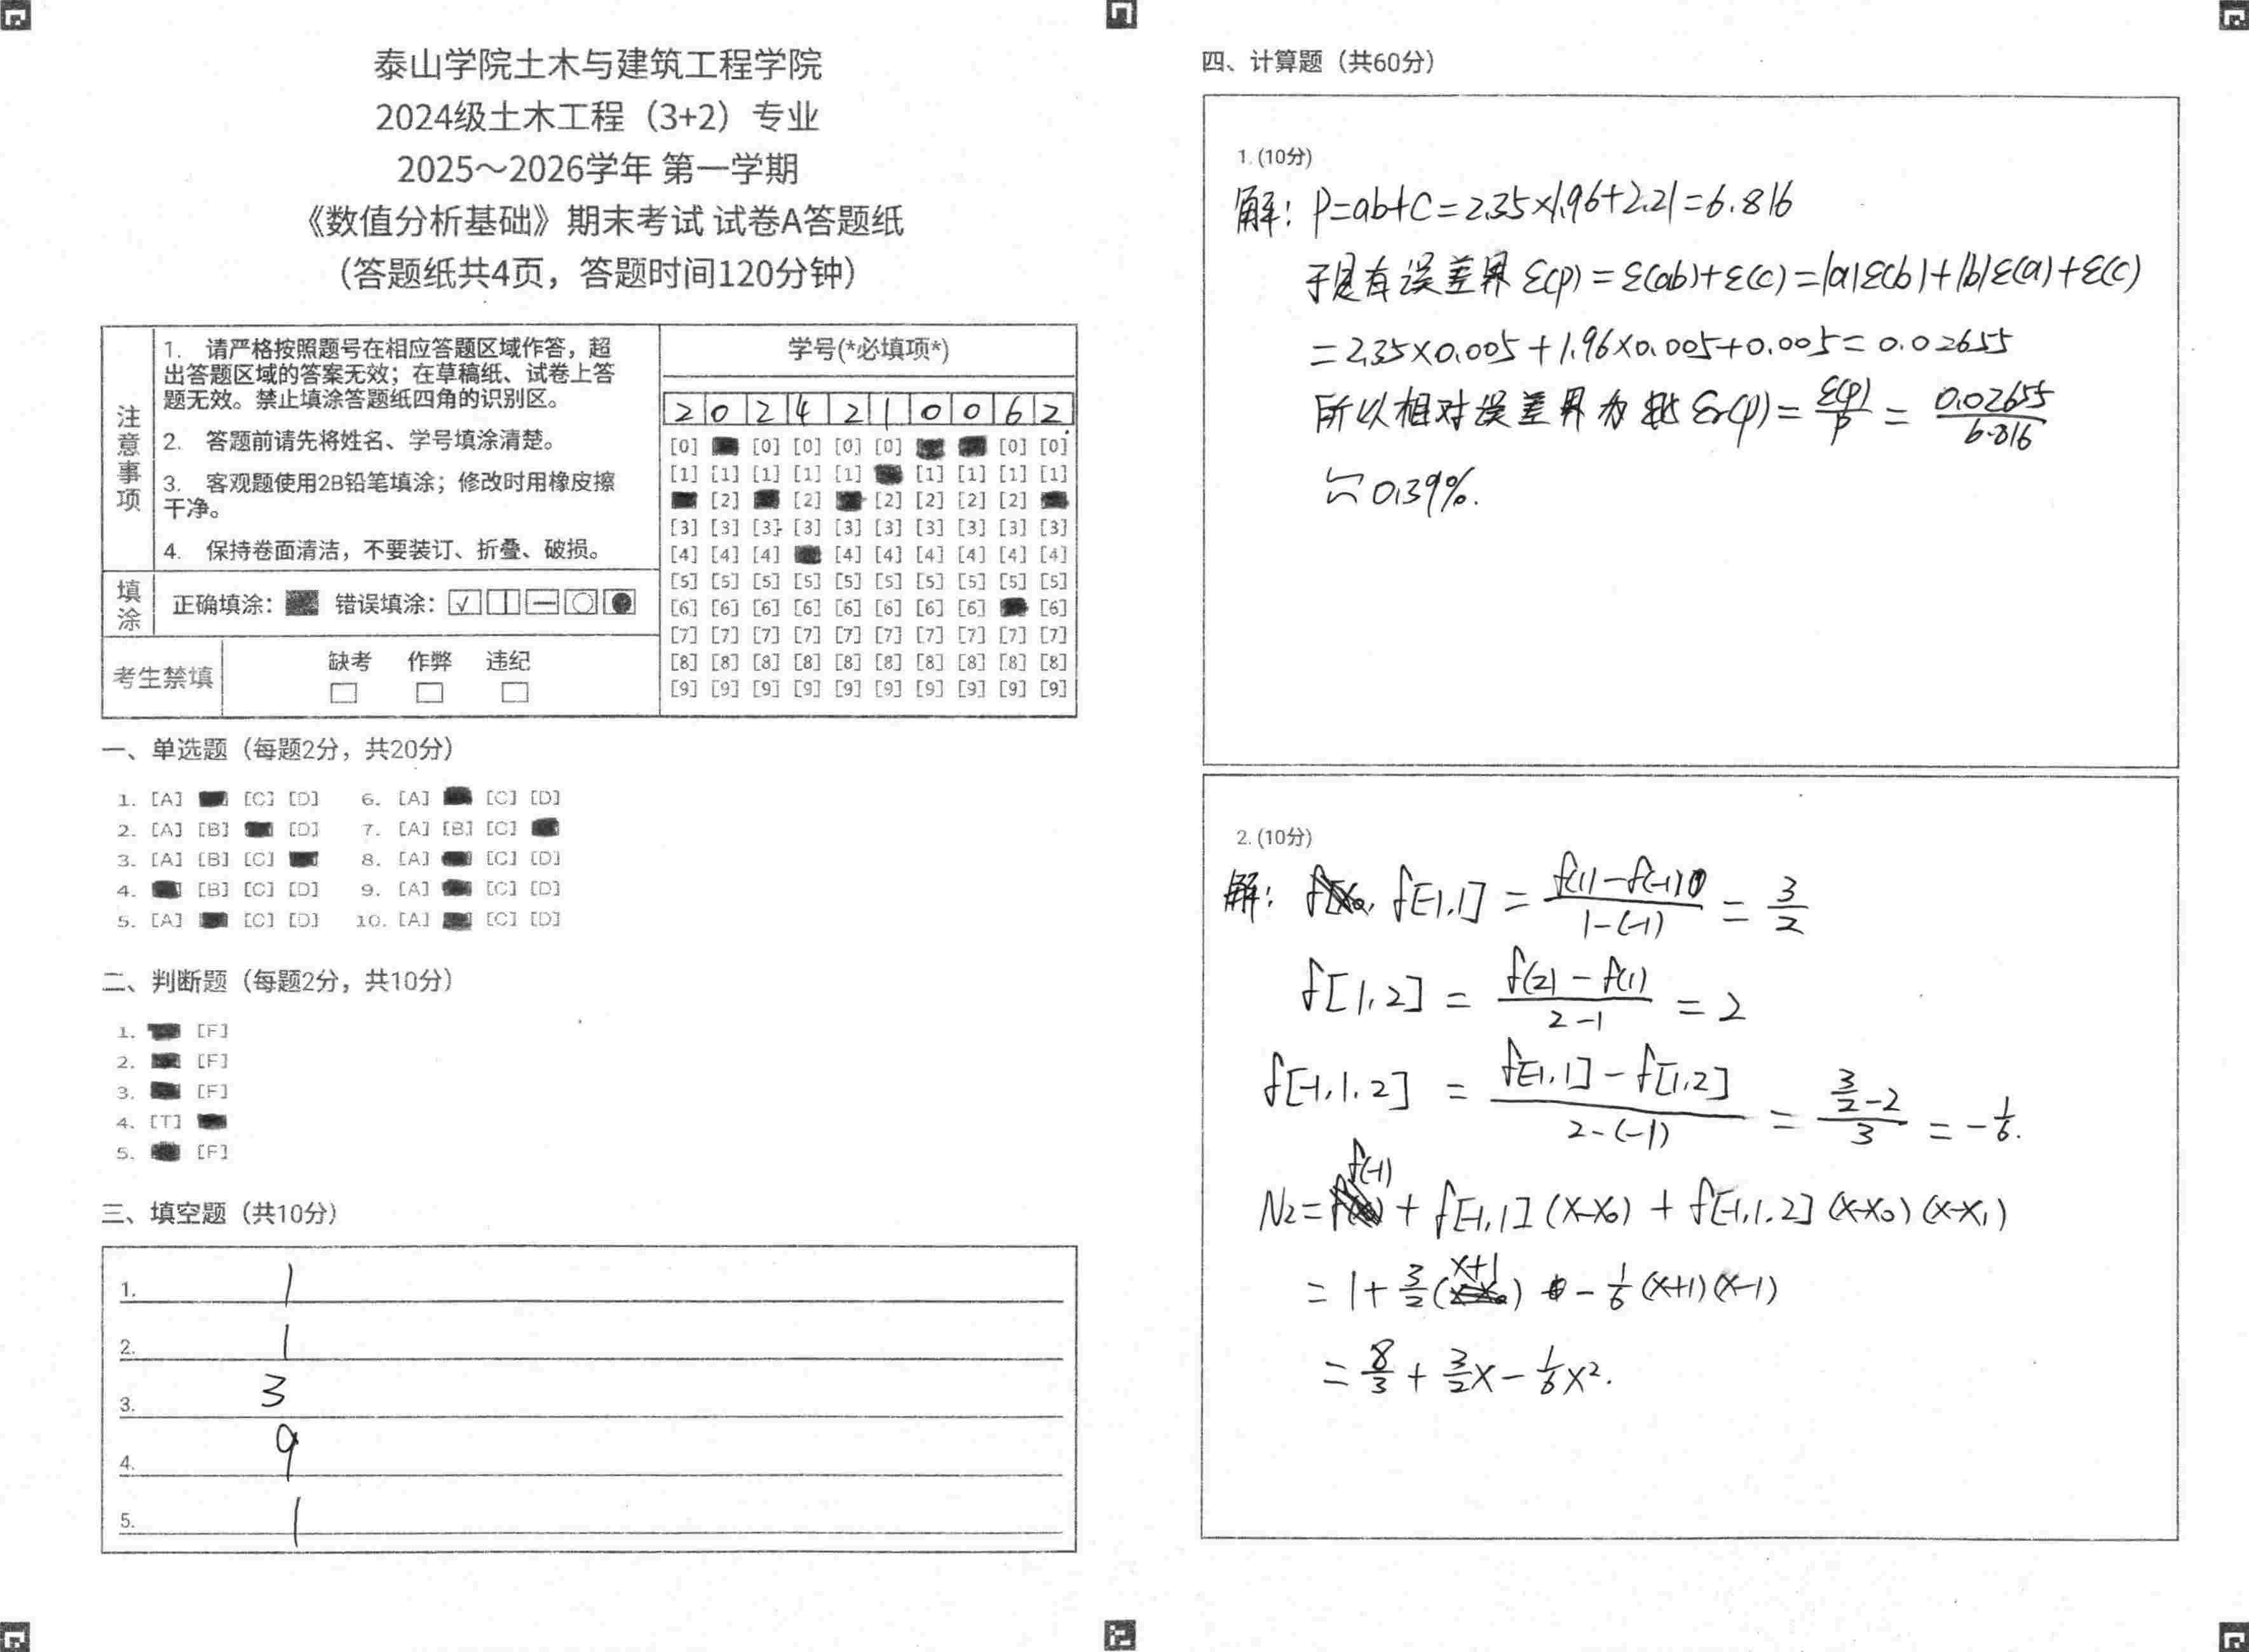 泰山学院土木与建筑工程学院
2024级土木工程（3+2）专业
2025～2026学年 第一学期
《数值分析基础》期末考试 试卷A答题纸
（答题纸共4页，答题时间120分钟）
注意事项
1. 请严格按照题号在相应答题区域作答，超
出答题区域的答案无效；在草稿纸、试卷上答
题无效。禁止填涂答题纸四角的识别区。
2. 答题前请先将姓名、学号填涂清楚。
3. 客观题使用2B铅笔填涂；修改时用橡皮擦
干净。
4. 保持卷面清洁，不要装订、折叠、破损。
填涂
正确填涂： 错误填涂：
考生禁填
缺考 作弊 违纪
学号(*必填项*)
2 0 2 4 2 1 0 0 6 2
[0] [0] [0] [0] [0] [0] [0]
[1] [1] [1] [1] [1] [1] [1] [1] [1]
[2] [2] [2] [2] [2] [2]
[3] [3] [3] [3] [3] [3] [3] [3] [3] [3]
[4] [4] [4] [4] [4] [4] [4] [4] [4]
[5] [5] [5] [5] [5] [5] [5] [5] [5] [5]
[6] [6] [6] [6] [6] [6] [6] [6] [6]
[7] [7] [7] [7] [7] [7] [7] [7] [7] [7]
[8] [8] [8] [8] [8] [8] [8] [8] [8] [8]
[9] [9] [9] [9] [9] [9] [9] [9] [9] [9]
一、单选题（每题2分，共20分）
1. [A] [C] [D] 6. [A] [C] [D]
2. [A] [B] [D] 7. [A] [B] [C]
3. [A] [B] [C] 8. [A] [C] [D]
4. [B] [C] [D] 9. [A] [C] [D]
5. [A] [C] [D] 10. [A] [C] [D]
二、判断题（每题2分，共10分）
1. [F]
2. [F]
3. [F]
4. [T]
5. [F]
三、填空题（共10分）
1. 1
2. 1
3. 3
4. 9
5. 1
四、计算题（共60分）
1. (10分)
解：p=ab+c=2.35×1.96+2.21=6.816
于是有误差界 ε(p)=ε(ab)+ε(c)=|a|ε(b)+|b|ε(a)+ε(c)
=2.35×0.005+1.96×0.005+0.005=0.02655
所以相对误差界为 εr(p)=ε(p)/p=0.02655/6.816
≈0.39%.
2. (10分)
解： f[-1,1]=(f(1)-f(-1))/(1-(-1))=3/2
f[1,2]=(f(2)-f(1))/(2-1)=2
f[-1,1,2]=(f[-1,1]-f[1,2])/(2-(-1))=(3/2-2)/3=-1/6.
N2=f(-1)+f[-1,1](x-x0)+f[-1,1,2](x-x0)(x-x1)
=1+3/2(x+1)-1/6(x+1)(x-1)
=8/3+3/2x-1/6x².